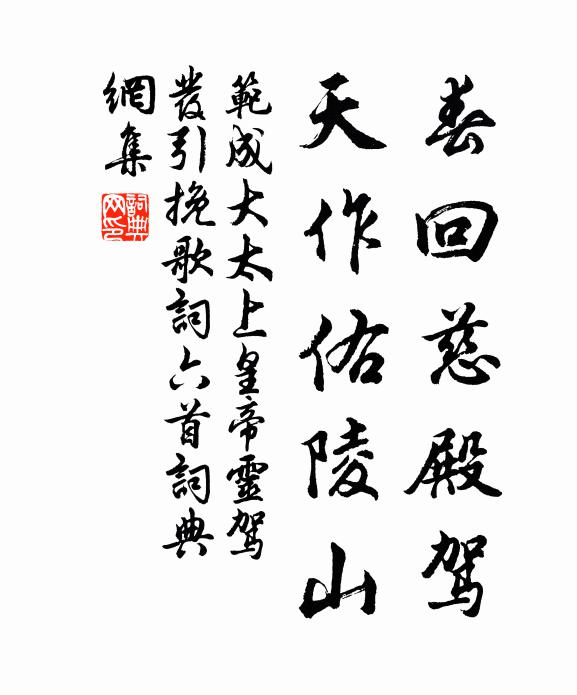 春回慈殿駕
天作佑陵山
範成大太上皇帝靈駕
發引挽歌詞六首詞典
網集
詞典
网印